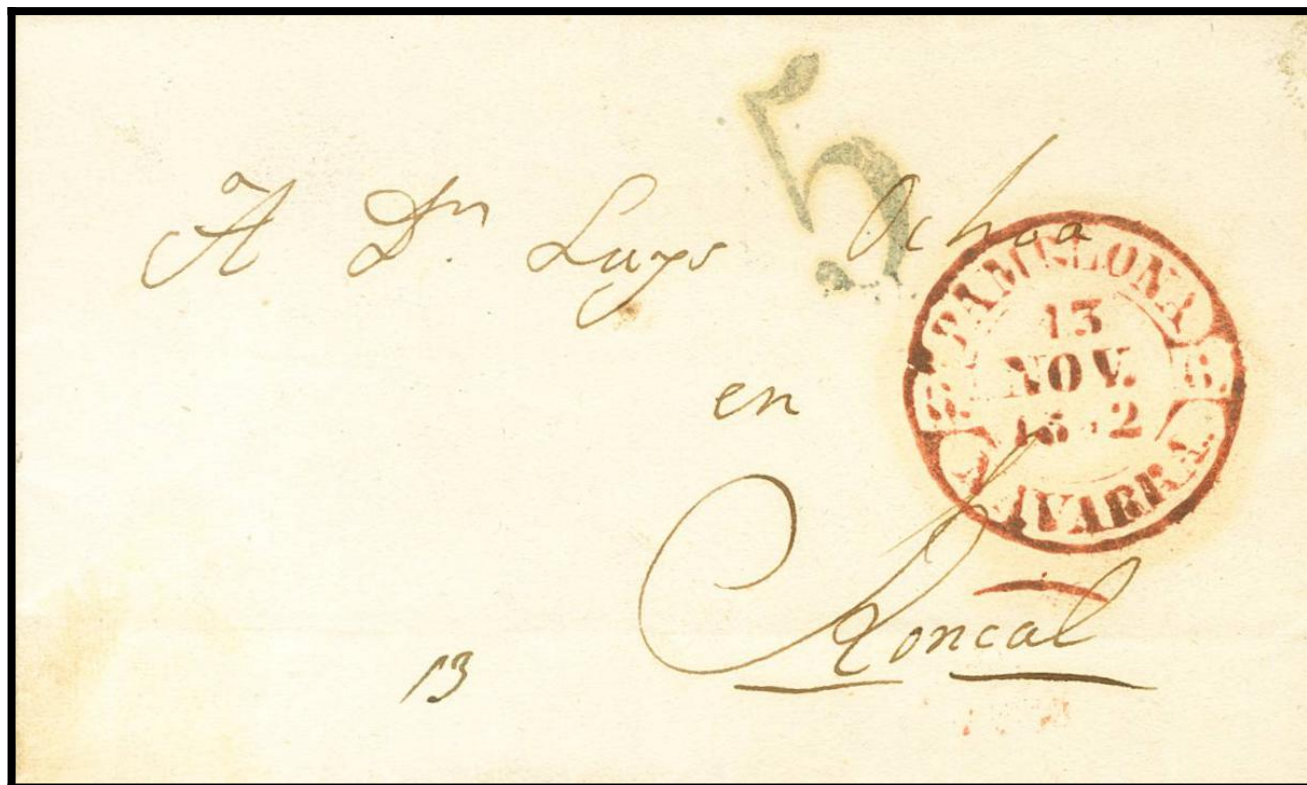 5
A Dn. Luys Ochoa
PAMPLONA
13
NOV.
NAVARRA
en
Roncal
13